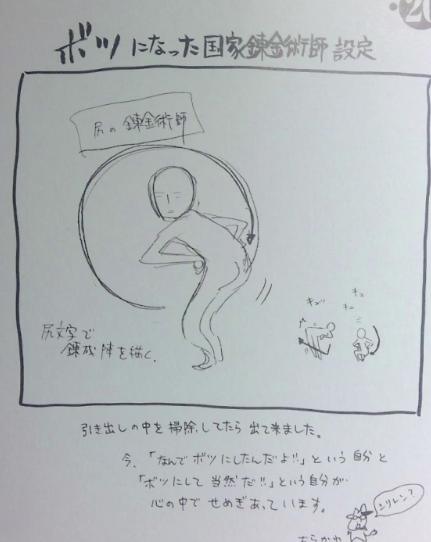 20
ボツになった国家錬金術師 設定
尻の錬金術師
尻文字で
錬成陣を描く。
キュッ
キュ
キュ
引き出しの中を掃除してたら出て来ました。
今、「なんでボツにしたんだよ!!」という自分と
「ボツにして当然だ!!」という自分が
心の中でせめぎあっています。
シリレン?
あらかわ